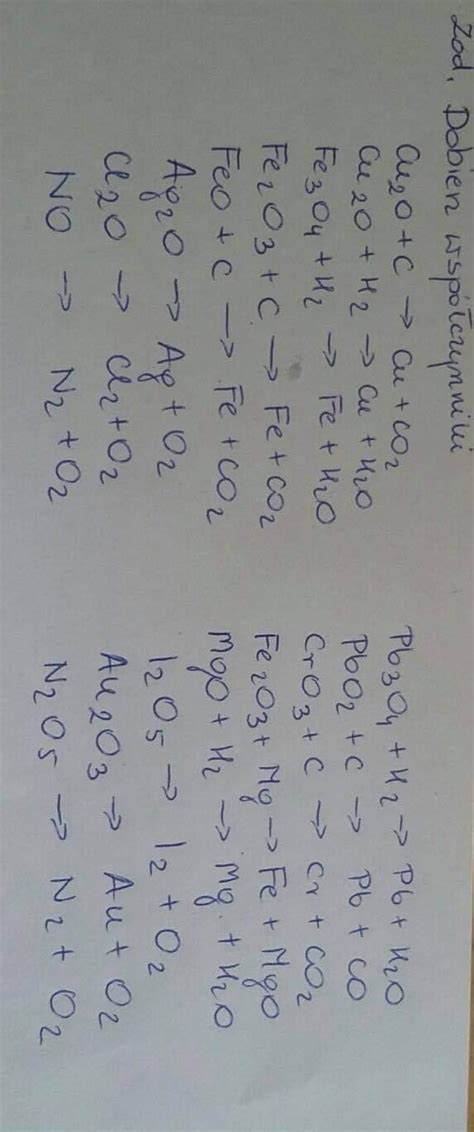 Zad. Dobierz współczynniki
Cu2O + C → Cu + CO2
Cu2O + H2 → Cu + H2O
Fe3O4 + H2 → Fe + H2O
Fe2O3 + C → Fe + CO2
FeO + C → Fe + CO2
Ag2O → Ag + O2
Cl2O → Cl2 + O2
NO → N2 + O2
Pb3O4 + H2 → Pb + H2O
PbO2 + C → Pb + CO
CrO3 + C → Cr + CO2
Fe2O3 + Mg → Fe + MgO
MgO + H2 → Mg + H2O
I2O5 → I2 + O2
Au2O3 → Au + O2
N2O5 → N2 + O2